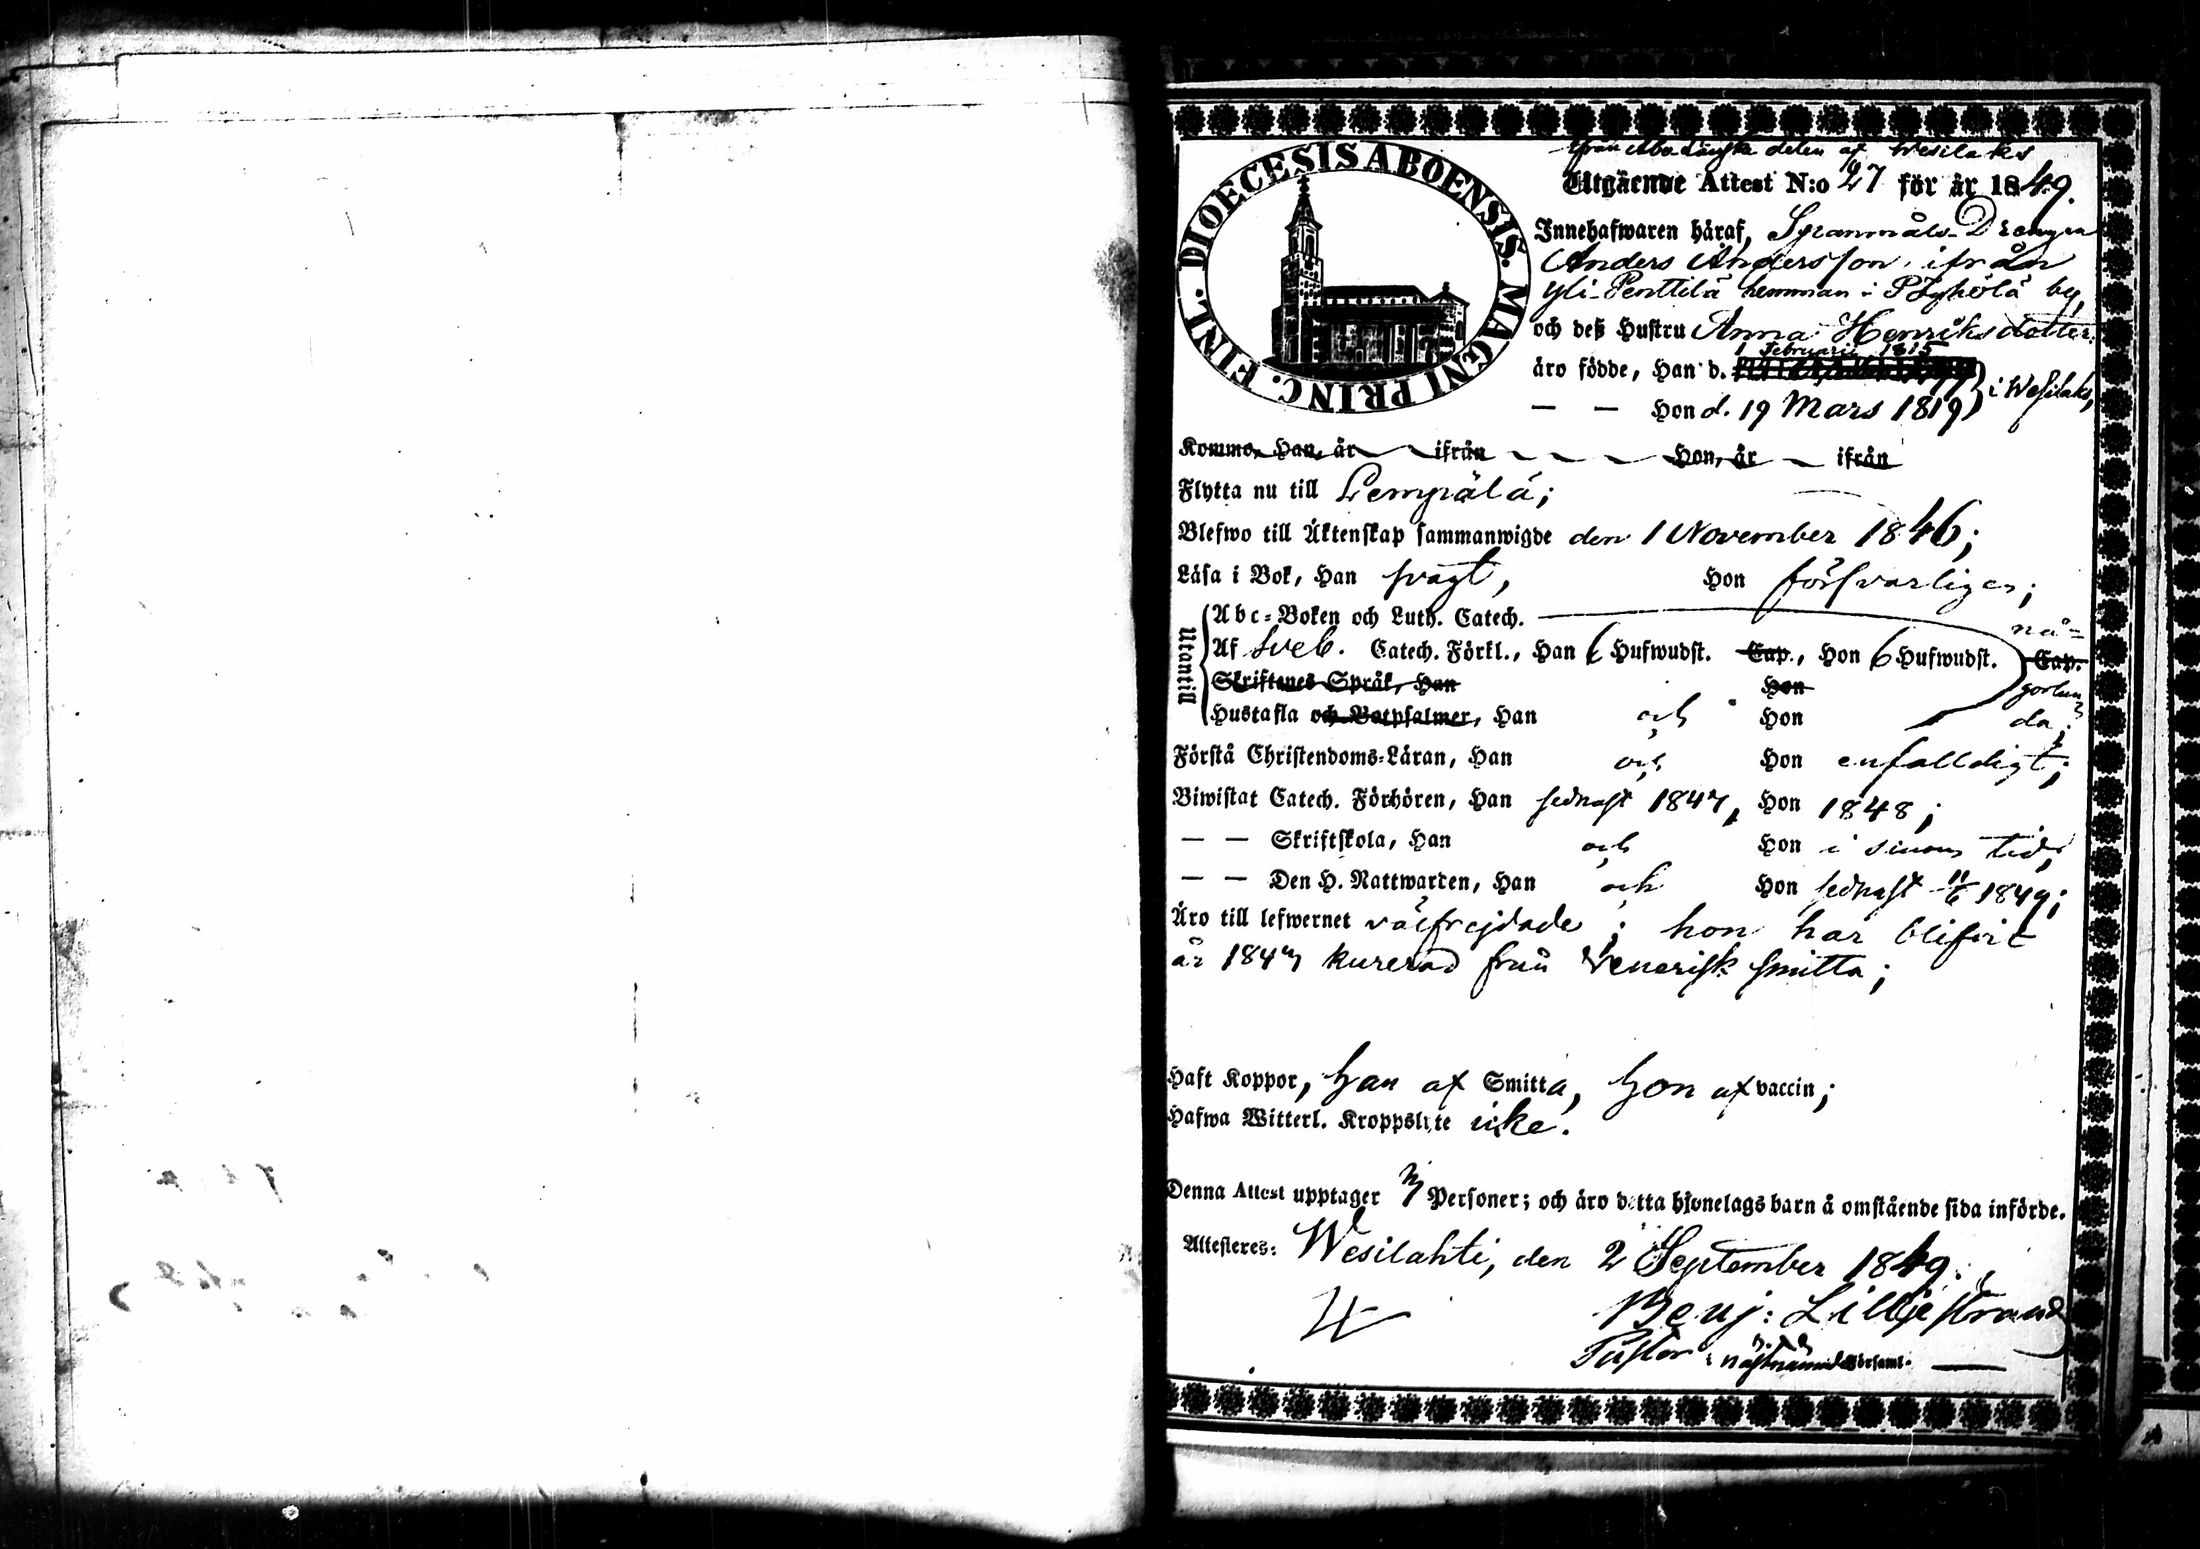 DIOECESIS ABOENSIS. MAGNI PRINC. FINL.
från Abo Länska delen af Wesilaks
Utgående Attest N:o 27 för år 1849.
Innehafwaren häraf, Spanmåls-Drengen
Anders Andersson, ifrån
Yli-Penttilä hemman i Pyhölä by,
och deß Hustru Anna Henriksdotter
1 Februarii 1815
äro födde, Han d. i Wesilaks,
— — Hon d. 19 Mars 1819
Komme, Han, år ifrån Hon, år ifrån
Flytta nu till Lempälä;
Blefwo till Äktenskap sammanwigde den 1 November 1846;
Läsa i Bok, Han svagt, Hon försvarligen;
Utantill
Abc-Boken och Luth. Catech.
nå-
Af Sveb. Catech. Förkl., Han 6 Hufwudst. Cap., Hon 6 Hufwudst. Cap.
Skriftenes Språk, Han Hon
gorlun
Hustafla och Botpsalmer, Han och Hon da;
Förstå Christendoms-Läran, Han och Hon enfalldigt;
Biwistat Catech. Förhören, Han sednast 1847, Hon 1848;
— — Skriftskola, Han och Hon i sinom tid;
— — Den H. Nattwarden, Han och Hon sednast 11/6 1849;
Äro till lefwernet välfrejdade; hon har blifvit
år 1847 kurerad från Venerisk smitta;
Haft Koppor, han af Smitta, hon af vaccin;
Hafwa Witterl. Kroppslyte icke.
Denna Attest upptager Personer; och äro detta hjonelags barn å omstående sida införde.
Attesteres: Wesilahti, den 2 September 1849.
Benj: Lilljestrand
Pastor i nästnämnde Församl.